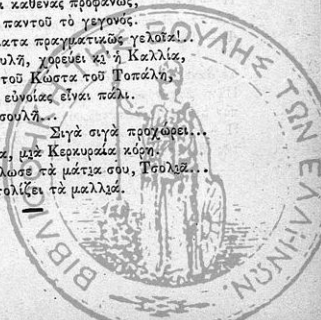 ι καθένας προφανῶς,
παντοῦ τὸ γεγονός.
ατα πραγματικῶς γελοῖα!..
ουλῆ, χορεύει κι' ἡ Καλλία,
τοῦ Κώστα τοῦ Τοπάλη,
εὐνοίας εἶναι πάλι.
σουλῆ...
Σιγὰ σιγὰ προχώρει...
α, μιὰ Κερκυραία κόρη.
λωσε τὰ μάτια σου, Τσολιᾶ...
τολίζει τὰ μαλλιά.
ΒΙΒΛΙΟΘΗΚΗ ΤΗΣ ΒΟΥΛΗΣ ΤΩΝ ΕΛΛΗΝΩΝ